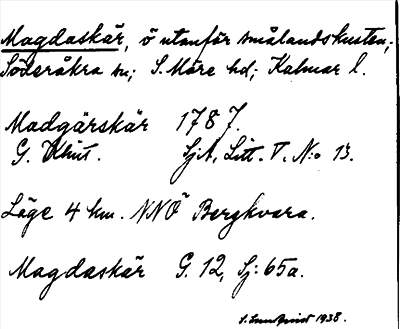 Magdaskär, ö utanför smålandskusten;
Söderåkra sn; S. Möre hd; Kalmar l.
Madgärskär 1787.
G. Klint. SjA, Litt. V. N:o 13.
Läge 4 km. NNÖ Bergkvara.
Magdaskär G. 12, Sj: 65a.
S. Lundqvist 1938.